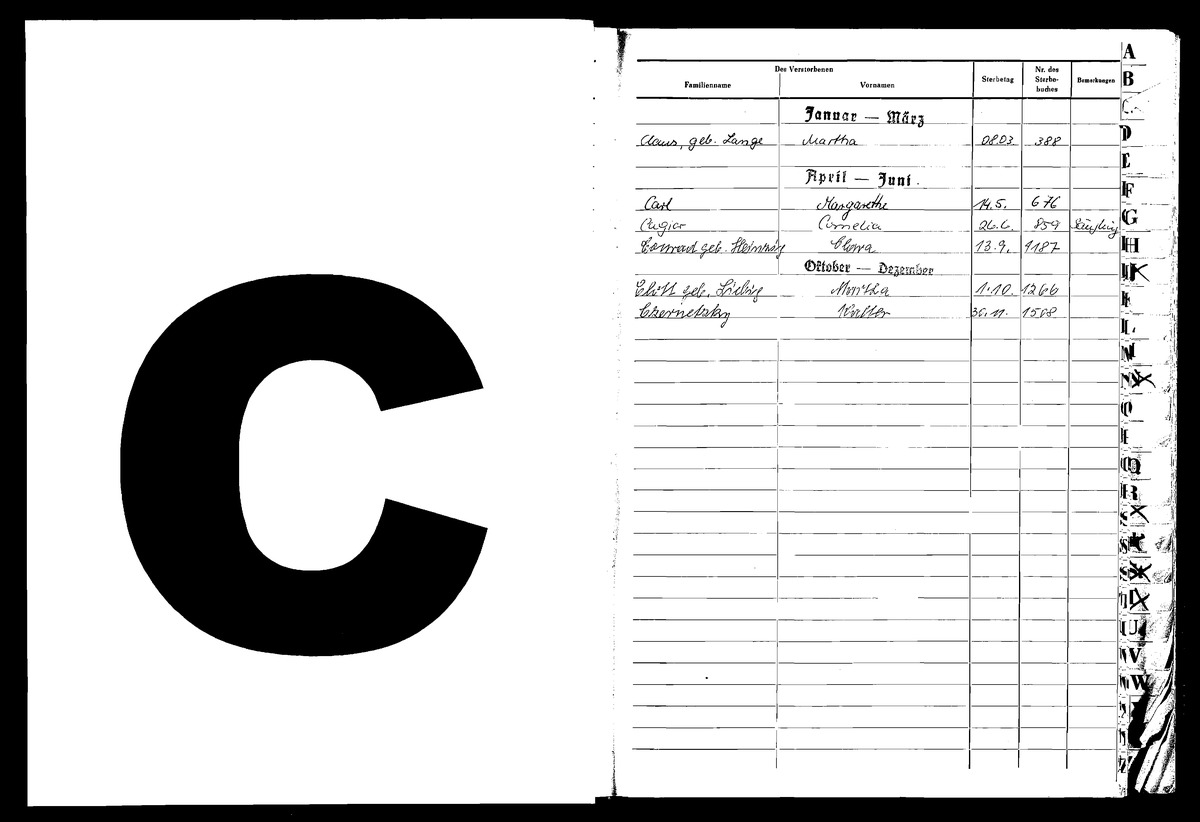 C
Des Verstorbenen
Familienname Vornamen Sterbetag Nr. des Sterbe-buches Bemerkungen
Januar — März
Claus, geb. Lange Martha 08.03 388
April — Juni.
Carl Margarethe 14.5. 676
Cornelia 26.6. 859 Säugling
Conrad geb. Clara 13.9. 1187
Oktober — Dezember
geb. Liebig Martha 1.10. 1266
Czernetzky Walter 30.11. 1508
A
B
C
D
E
F
G
H
K
L
M
N
O
Q
R
S
S
S
T
U
V
W
Z